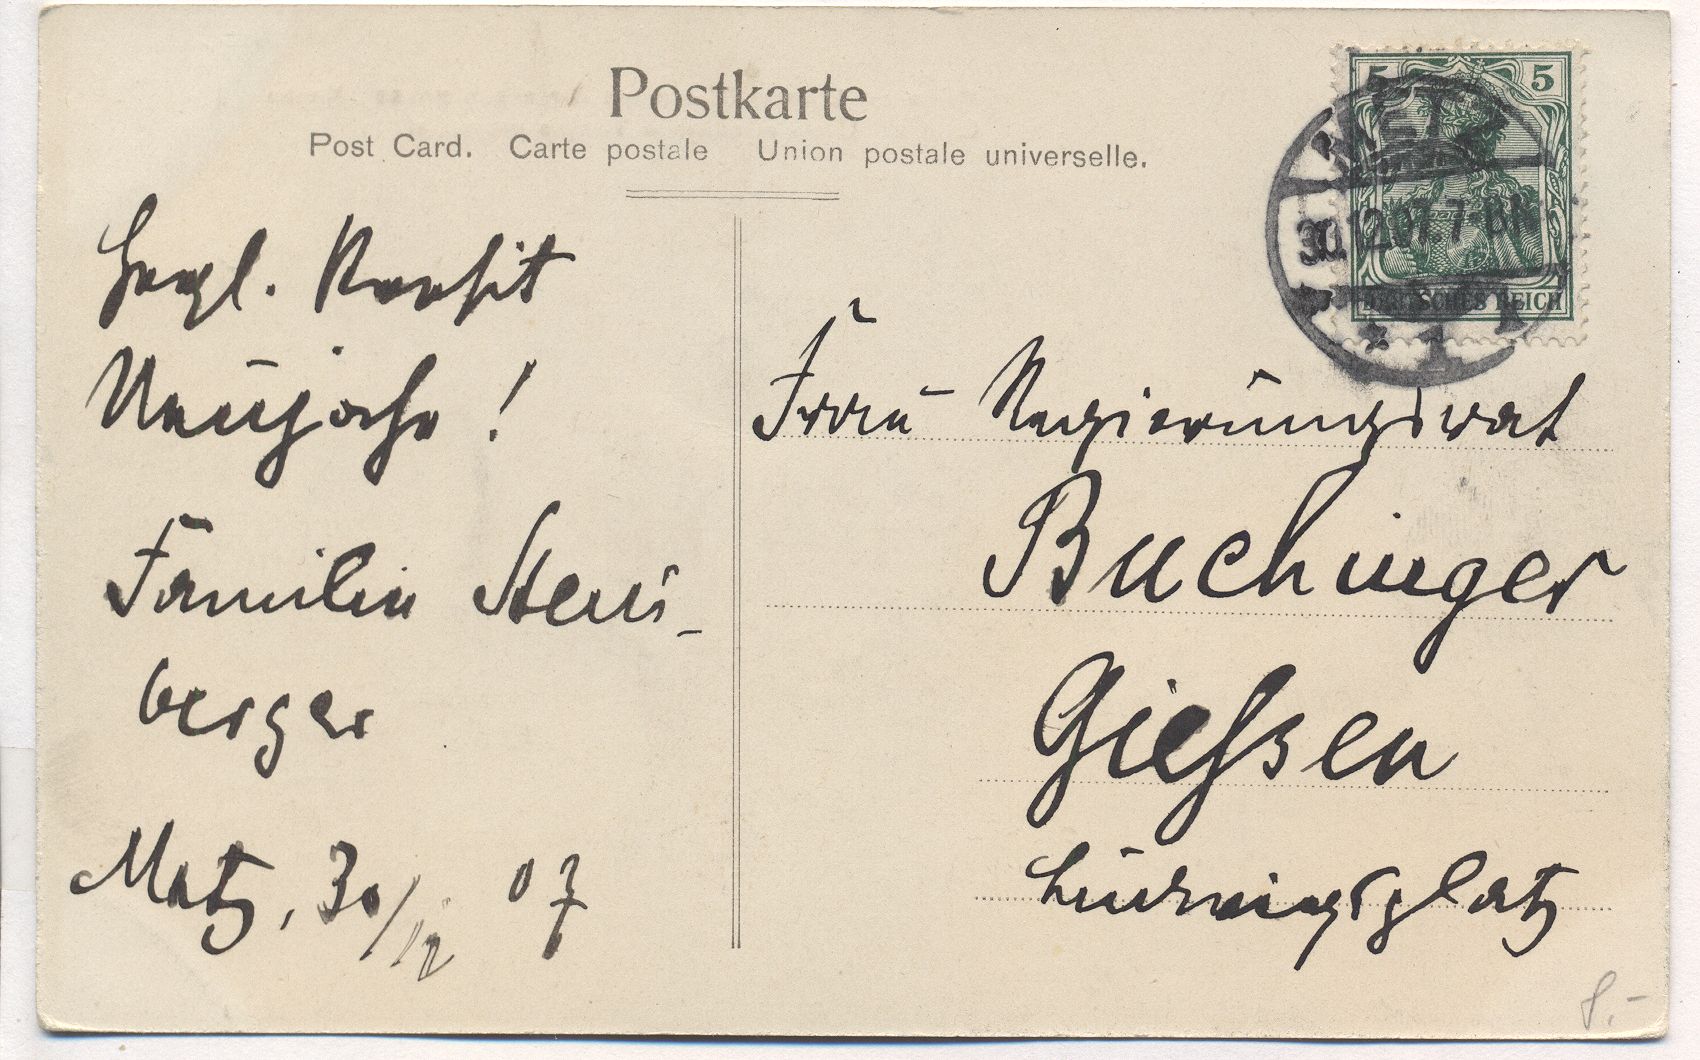 Postkarte
Post Card. Carte postale Union postale universelle.
5 5
METZ
30.12.07.7-8N
DEUTSCHES REICH
* 1 k
Herzl. Prosit
Neujahr!
Familie Stern-
berger
Metz, 30/12 07
Frau Regierungsrat
Buchinger
Giessen
Ludwigsplatz
8.-